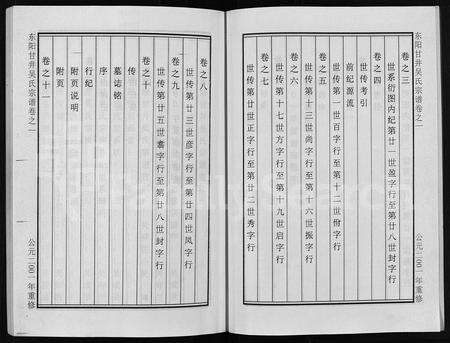 东阳甘井吴氏宗谱卷之一
卷之三
世系衍图内纪第廿一世盈字行至第廿八世封字行
卷之四
世传考引
前纪源流
世传第一世百字行至第十二世佾字行
卷之五
世传第十三世尚字行至第十六世振字行
卷之六
世传第十七世方字行至第十九世启字行
卷之七
世传第廿世正字行至第廿二世秀字行
公元二00一年重修
卷之八
世传第廿三世彦字行至第廿四世凤字行
卷之九
世传第廿五世翥字行至第廿八世封字行
卷之十
传
墓志铭
序
行纪
附页说明
附页
卷之十一
东阳甘井吴氏宗谱卷之一
公元二00一年重修